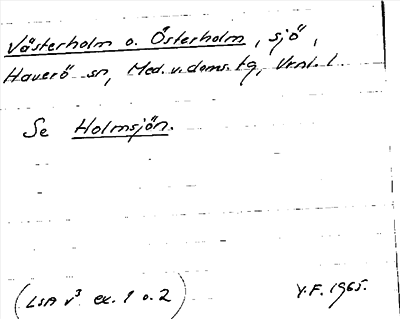 Västerholm o. Österholm, sjö,
Haverö sn, Med. v. doms. tg, Vrnl. l.
Se Holmsjön.
(LSA v³ ex. 1 o. 2)
Y.F. 1965.